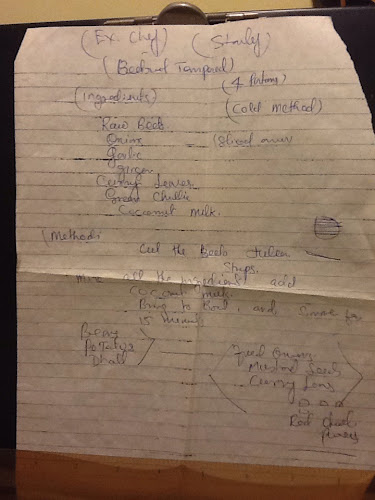 (Ex. Chef) (Stanly)
(Beetroot Tampered)
(4 Portions)
(Ingredients) (Cold Method)
Raw Beets.
Onion — (Sliced
Garlic
Ginger
Curry Leaves
Green Chillie
Coconut Milk.
Method:
Cut the Beets Julien
Strips.
Mix all the ingredient add
Coconut Milk.
Bring to Boil, and for
15 minut
Beans
Potatoes
Dhall
Fried Onions
Mustard Seeds
Curry Leavs
Red